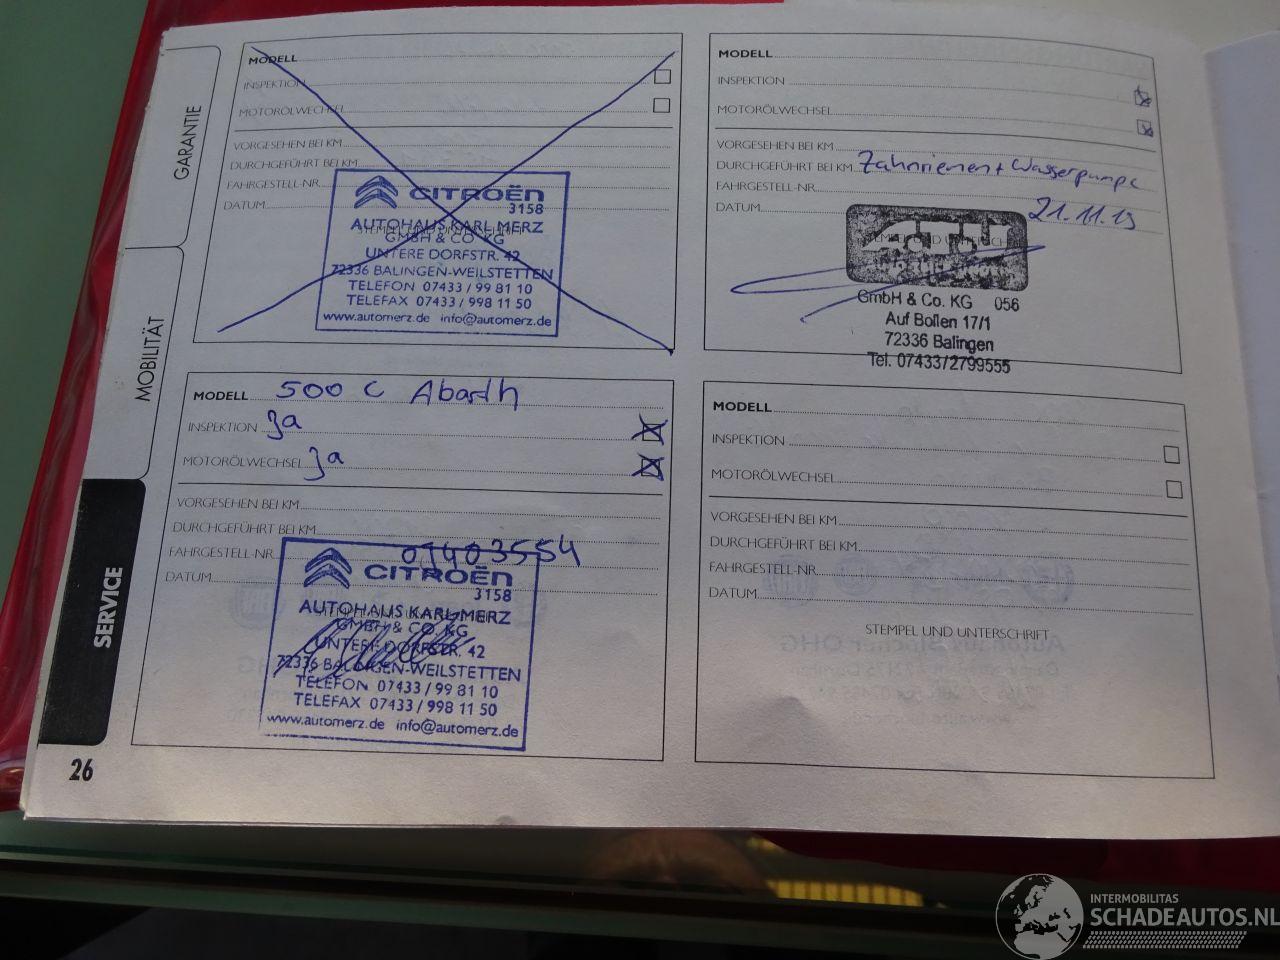 GARANTIE
MOBILITÄT
SERVICE
MODELL
INSPEKTION
MOTORÖLWECHSEL
VORGESEHEN BEI KM
DURCHGEFÜHRT BEI KM
FAHRGESTELL-NR.
DATUM
CITROËN
3158
AUTOHAUS KARL MERZ
GMBH & CO KG
UNTERE DORFSTR. 42
72336 BALINGEN-WEILSTETTEN
TELEFON 07433 / 99 81 10
TELEFAX 07433 / 998 11 50
www.automerz.de info@automerz.de
MODELL
INSPEKTION
MOTORÖLWECHSEL
VORGESEHEN BEI KM
DURCHGEFÜHRT BEI KM Zahnriemen + Wasserpumpe
FAHRGESTELL-NR.
DATUM 21.11.19
STEMPEL UND UNTERSCHRIFT
GmbH & Co. KG 056
Auf Bollen 17/1
72336 Balingen
Tel. 07433/2799555
MODELL 500 C Abarth
INSPEKTION Ja
MOTORÖLWECHSEL Ja
VORGESEHEN BEI KM
DURCHGEFÜHRT BEI KM
FAHRGESTELL-NR. 01403554
DATUM
CITROËN
3158
AUTOHAUS KARL MERZ
GMBH & CO KG
UNTERE DORFSTR. 42
72336 BALINGEN-WEILSTETTEN
TELEFON 07433 / 99 81 10
TELEFAX 07433 / 998 11 50
www.automerz.de info@automerz.de
MODELL
INSPEKTION
MOTORÖLWECHSEL
VORGESEHEN BEI KM
DURCHGEFÜHRT BEI KM
FAHRGESTELL-NR.
DATUM
STEMPEL UND UNTERSCHRIFT
26
INTERMOBILITAS
SCHADEAUTOS.NL